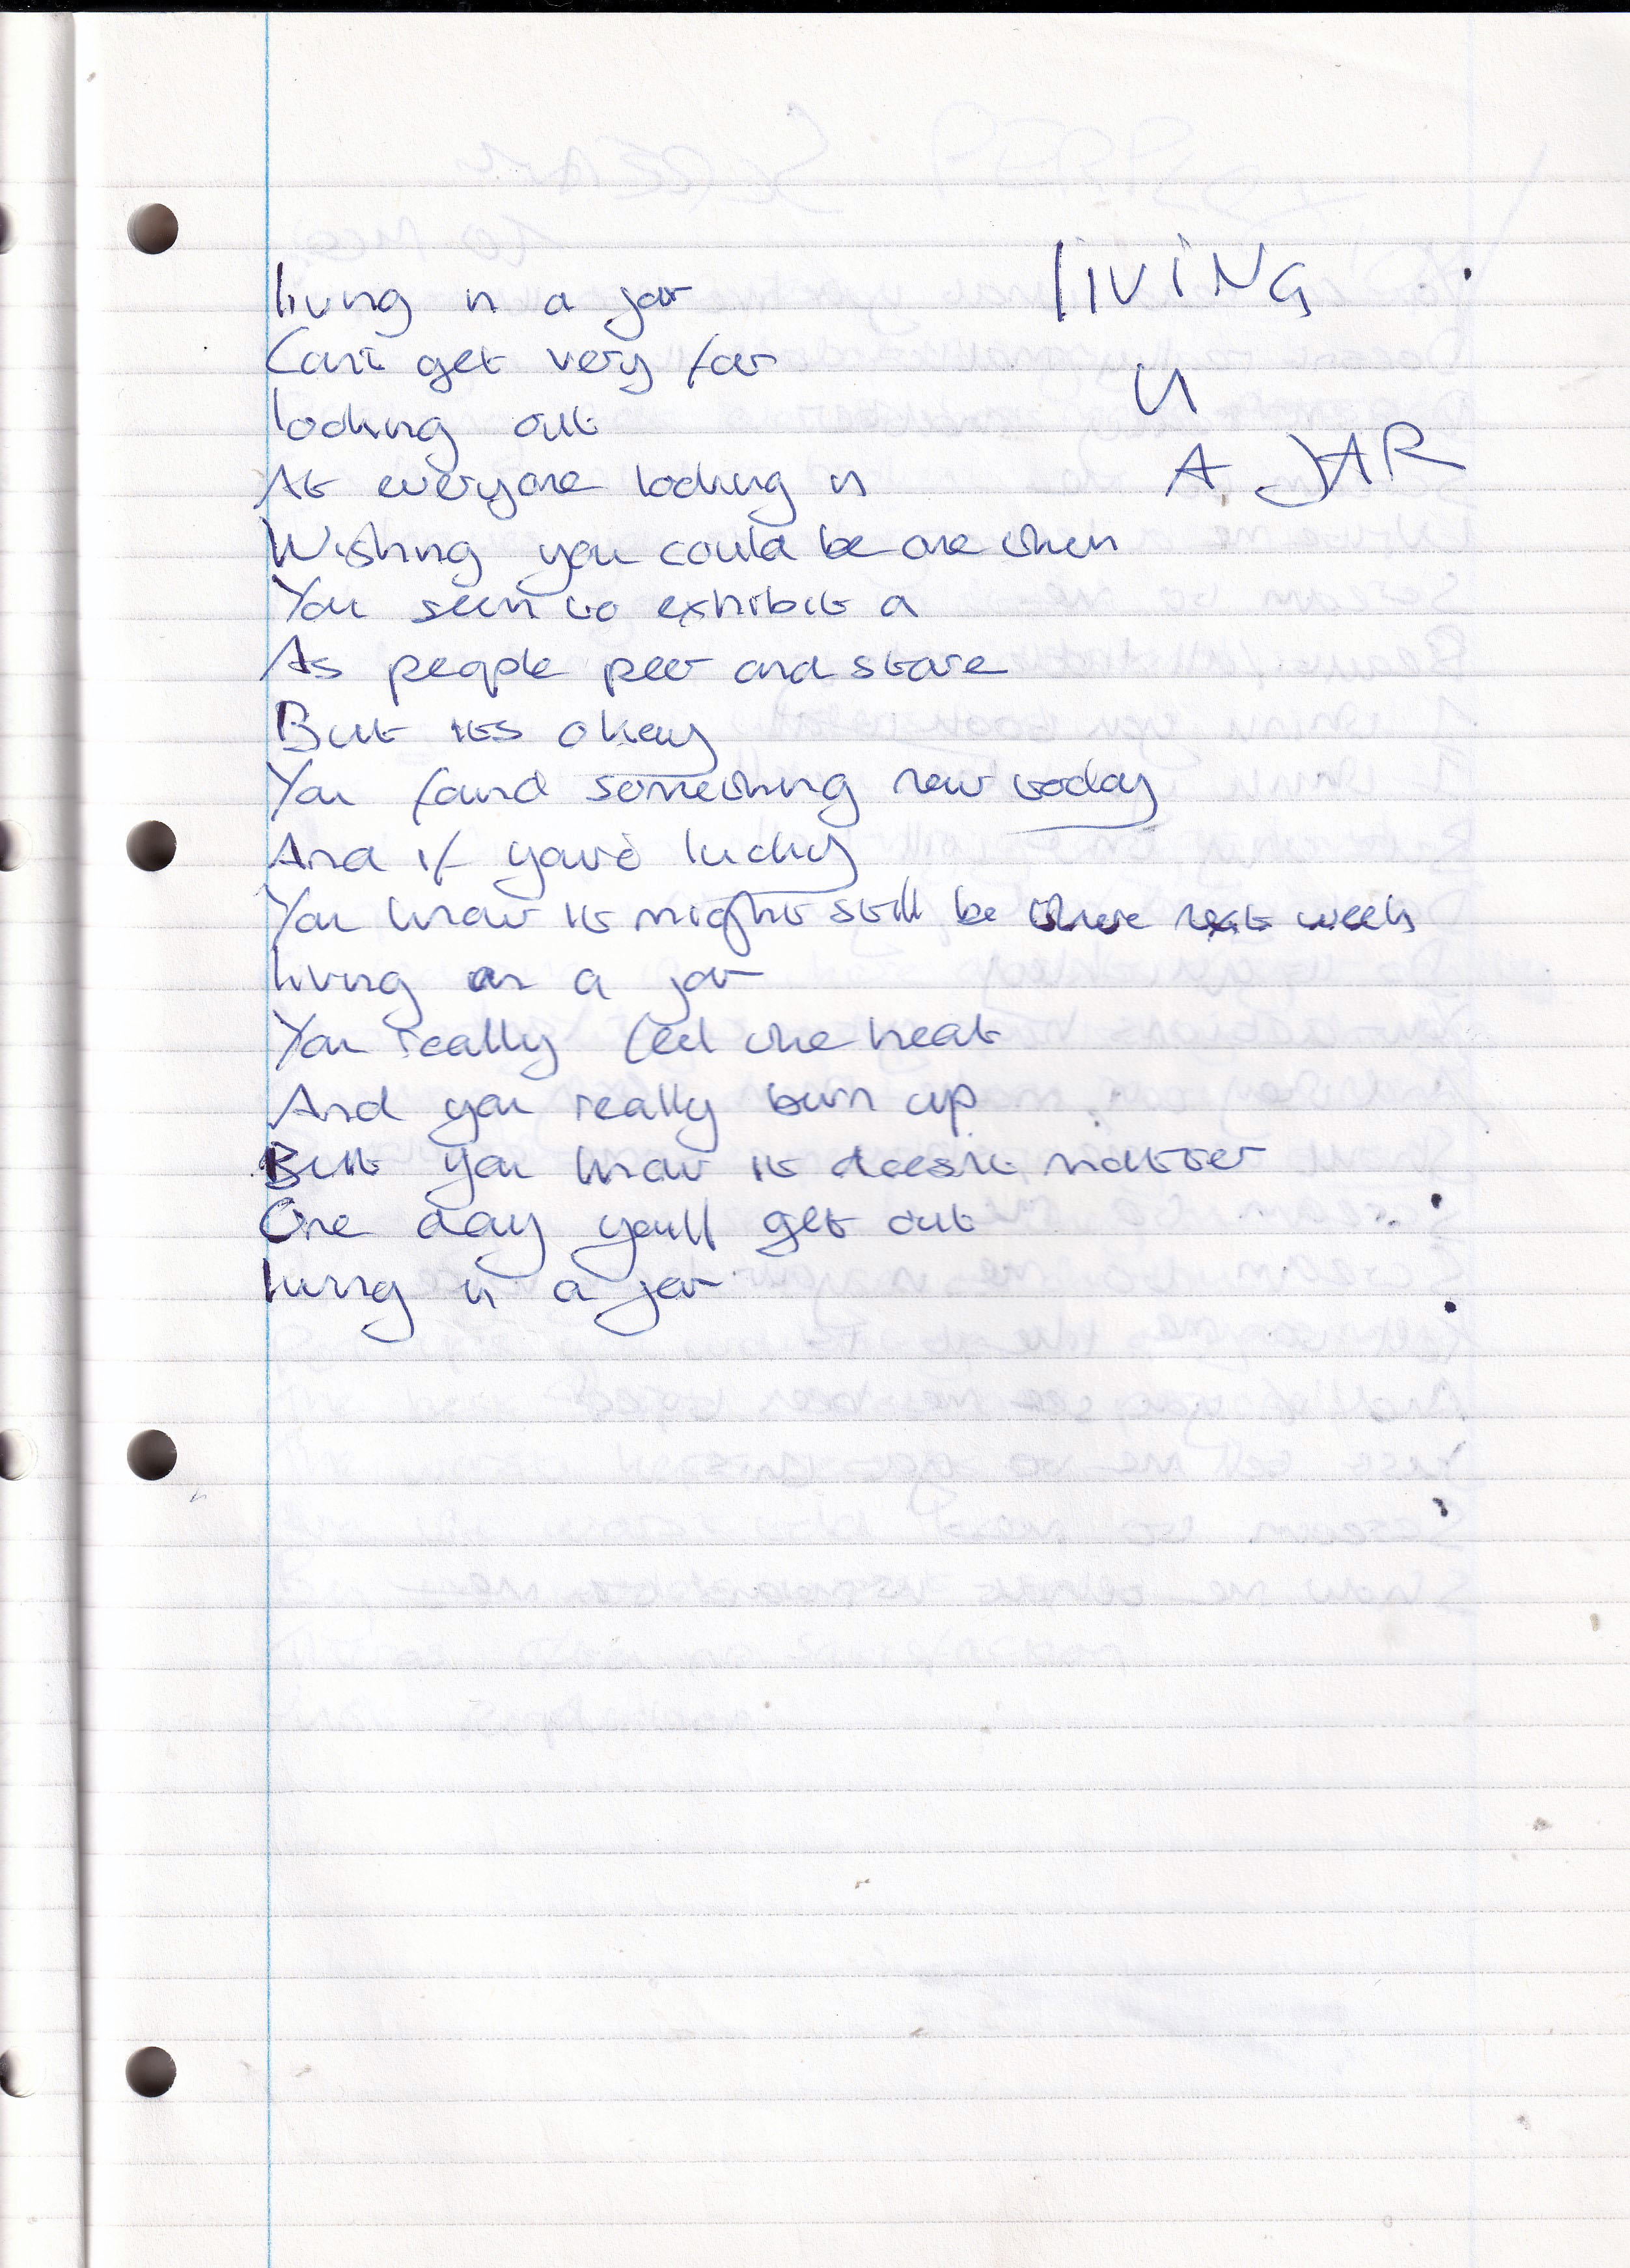 LIVING
IN
A JAR
living in a jar
Cant get very far
looking out
At everyone looking in
Wishing you could be one when
You seem to exhibit a
As people peer and stare
But its okay
You found something new today
And if your'e lucky
You know it might still be there next week
living in a jar
You really feel the heat
And you really burn up
But you know it doesnt matter
One day youll get out
living in a jar